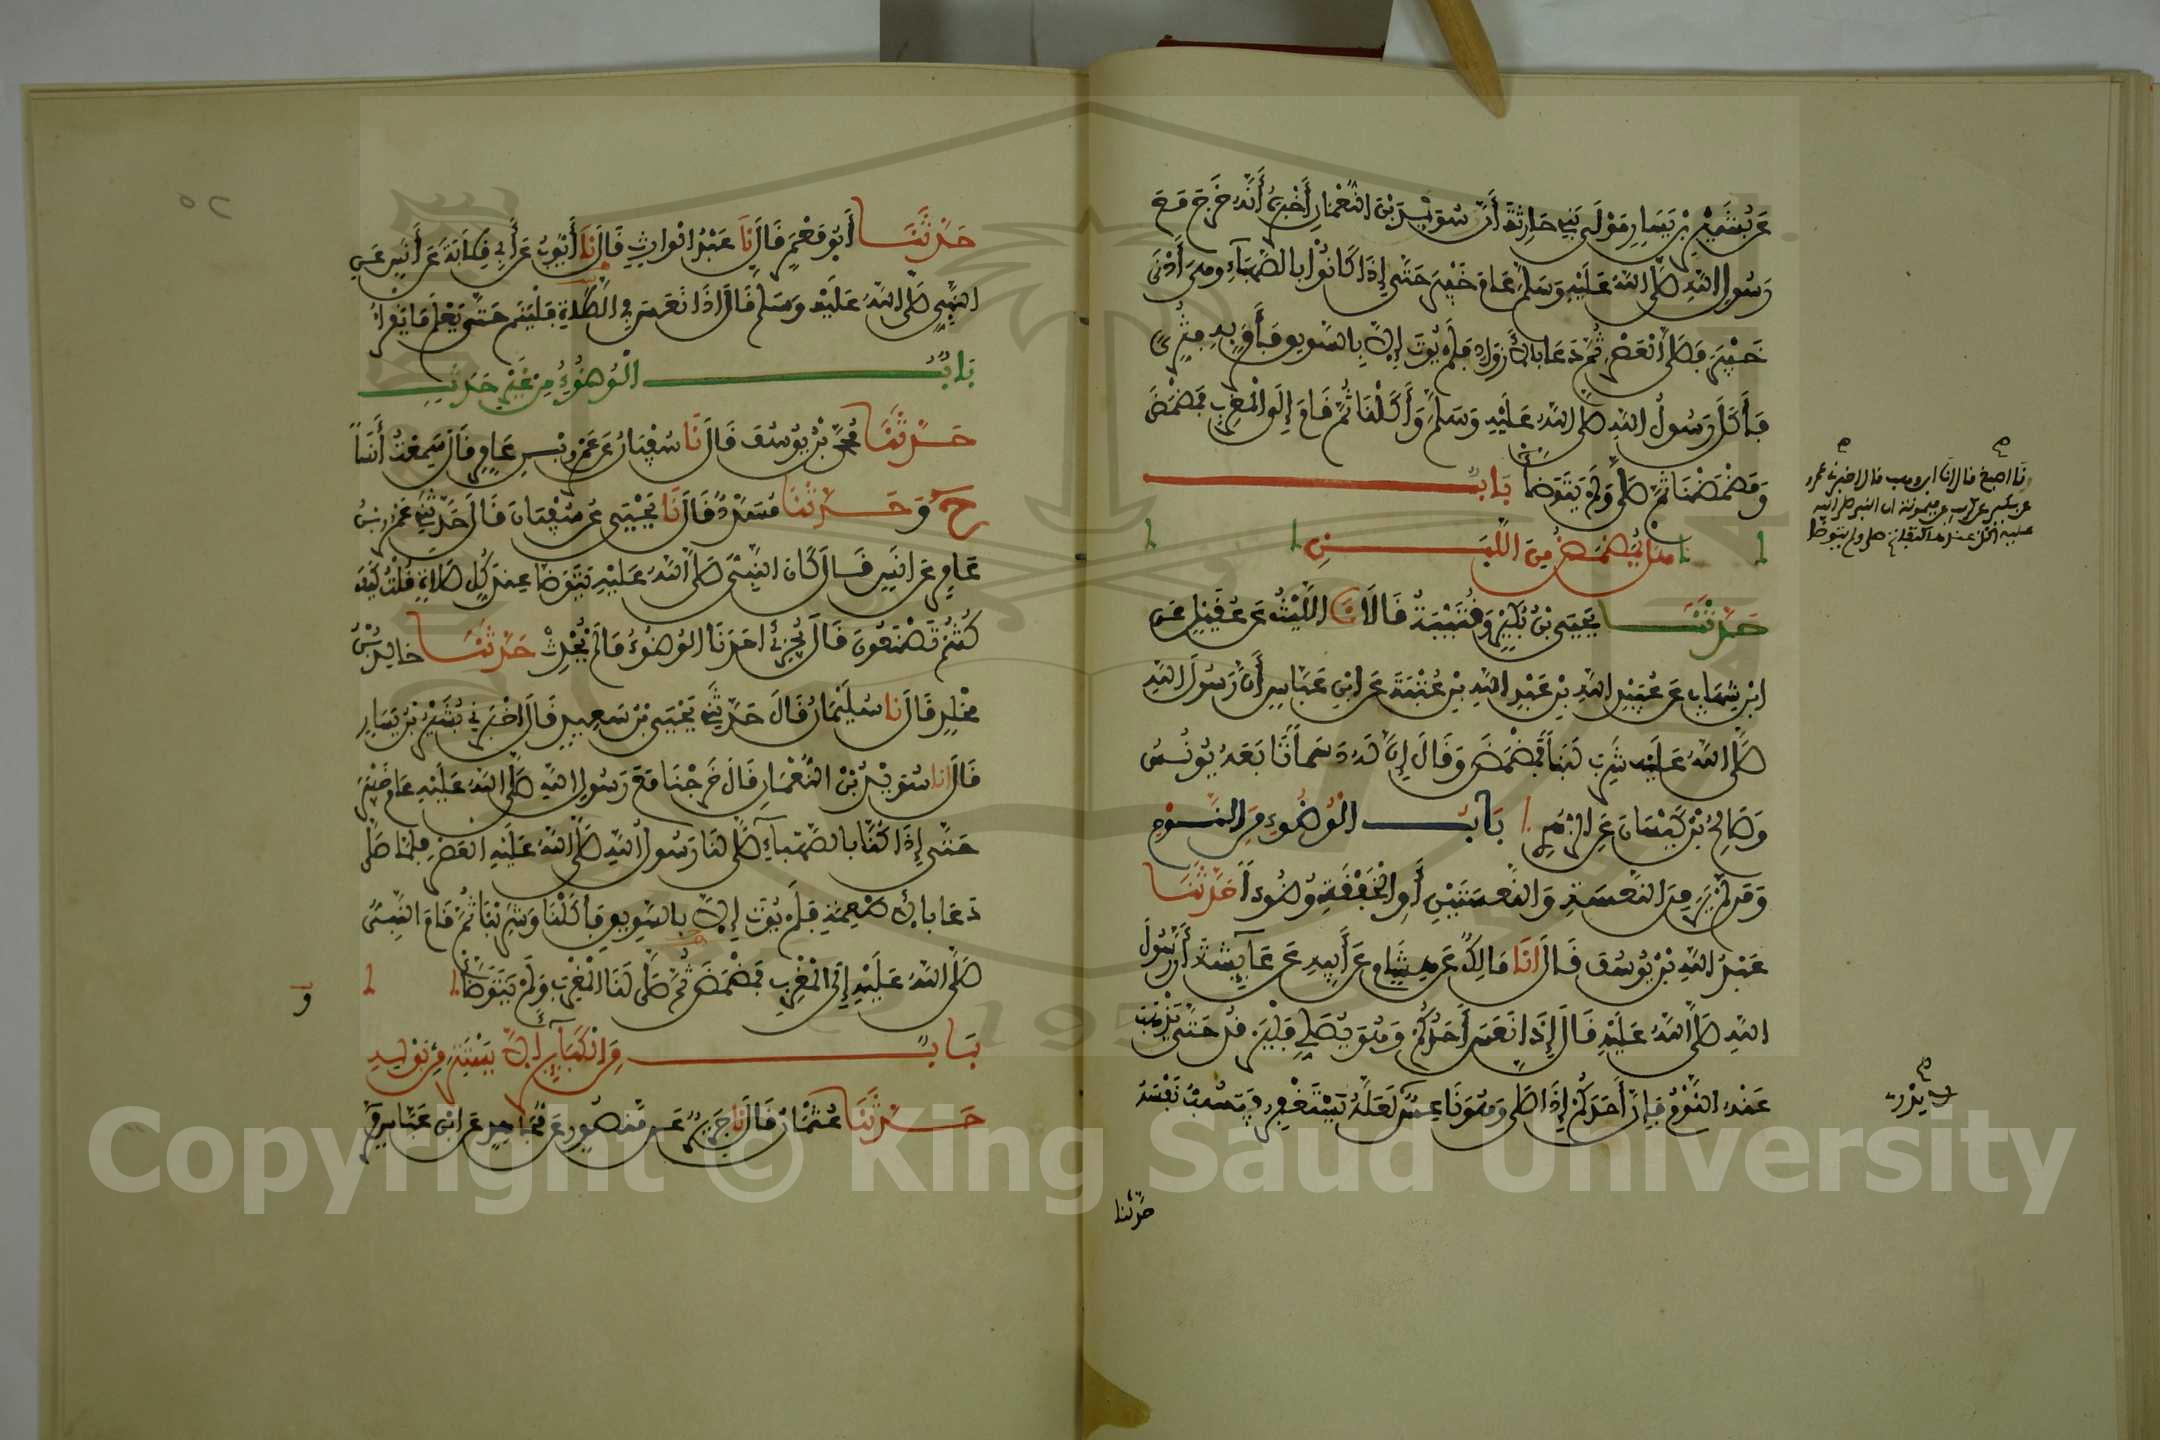 عَن بُشَيْرِ بْنِ يَسَارٍ مَوْلَى بَنِي حَارِثَةَ أَنَّ سُوَيْدَ بْنَ النُّعْمَانِ أَخْبَرَهُ أَنَّهُ خَرَجَ مَعَ
رَسُولِ اللَّهِ صَلَّى اللَّهُ عَلَيْهِ وَسَلَّمَ عَامَ خَيْبَرَ حَتَّى إِذَا كَانُوا بِالصَّهْبَاءِ وَهِيَ أَدْنَى
خَيْبَرَ فَصَلَّى الْعَصْرَ ثُمَّ دَعَا بِالأَزْوَادِ فَلَمْ يُوتَ إِلاَّ بِالسَّوِيقِ فَأَمَرَ بِهِ فَثُرِّيَ
فَأَكَلَ رَسُولُ اللَّهِ صَلَّى اللَّهُ عَلَيْهِ وَسَلَّمَ وَأَكَلْنَا ثُمَّ قَامَ إِلَى الْمَغْرِبِ فَمَضْمَضَ
وَمَضْمَضْنَا ثُمَّ صَلَّى وَلَمْ يَتَوَضَّأْ بَابُ
هَلْ يُمَضْمِضُ مِنَ اللَّبَنِ
حَدَّثَنَا يَحْيَى بْنُ بُكَيْرٍ وَقُتَيْبَةُ قَالَا نَا اللَّيْثُ عَن عُقَيْلٍ عَنِ
ابْنِ شِهَابٍ عَن عُبَيْدِ اللَّهِ بْنِ عَبْدِ اللَّهِ بْنِ عُتْبَةَ عَنِ ابْنِ عَبَّاسٍ أَنَّ رَسُولَ اللَّهِ
صَلَّى اللَّهُ عَلَيْهِ شَرِبَ لَبَناً فَمَضْمَضَ وَقَالَ إِنَّ لَهُ دَسَماً تَابَعَهُ يُونُسُ
وَصَالِحُ بْنُ كَيْسَانَ عَنِ الزُّهْرِيِّ بَابُ الْوُضُوءِ مِنَ النَّوْمِ
وَمَن لَّمْ يَرَ مِنَ النَّعْسَةِ وَالنَّعْسَتَيْنِ أَوِ الْخَفْقَةِ وُضُوءاً حَدَّثَنَا
عَبْدُ اللَّهِ بْنُ يُوسُفَ قَالَ انَا مَالِكٌ عَن هِشَامٍ عَن أَبِيهِ عَن عَائِشَةَ أَنَّ رَسُولَ
اللَّهِ صَلَّى اللَّهُ عَلَيْهِ قَالَ إِذَا نَعَسَ أَحَدُكُمْ وَهُوَ يُصَلِّي فَلْيَرْقُدْ حَتَّى يَذْهَبَ
عَنْهُ النَّوْمُ فَإِنَّ أَحَدَكُمْ إِذَا صَلَّى وَهُوَ نَاعِسٌ لَعَلَّهُ يَسْتَغْفِرُ فَيَسُبُّ نَفْسَهُ
حدثنا
نا اصبغ قال انا ابن وهب قال اخبرني عمرو
عن بكير عن كريب عن ميمونة ان النبي صلى الله
عليه اكل عندها كتفا ثم صلى ولم يتوضأ
لا يدري
حَدَّثَنَا أَبُو مَعْمَرٍ قَالَ نَا عَبْدُ الْوَارِثِ قَالَ نَا أَيُّوبُ عَن أَبِي قِلَابَةَ عَن أَنَسٍ عَنِ
النَّبِيِّ صَلَّى اللَّهُ عَلَيْهِ وَسَلَّمَ قَالَ إِذَا نَعَسَ فِي الصَّلَاةِ فَلْيَنَمْ حَتَّى يَعْلَمَ مَا يَقْرَأُ
بَابُ الْوُضُوءِ مِنْ غَيْرِ حَدَثٍ
حَدَّثَنَا مُحَمَّدُ بْنُ يُوسُفَ قَالَ نَا سُفْيَانُ عَن عَمْرِو بْنِ عَامِرٍ قَالَ سَمِعْتُ أَنَساً
ح وَحَدَّثَنَا مُسَدَّدٌ قَالَ نَا يَحْيَى عَن سُفْيَانَ قَالَ حَدَّثَنِي عَمْرُو بْنُ
عَامِرٍ عَن أَنَسٍ قَالَ كَانَ النَّبِيُّ صَلَّى اللَّهُ عَلَيْهِ يَتَوَضَّأُ عِندَ كُلِّ صَلَاةٍ قُلْتُ كَيْفَ
كُنتُمْ تَصْنَعُونَ قَالَ يُجْزِئُ أَحَدَنَا الْوُضُوءُ مَا لَمْ يُحْدِثْ حَدَّثَنَا خَالِدُ بْنُ
مَخْلَدٍ قَالَ نَا سُلَيْمَانُ قَالَ حَدَّثَنِي يَحْيَى بْنُ سَعِيدٍ قَالَ أَخْبَرَنِي بُشَيْرُ بْنُ يَسَارٍ
قَالَ انا سُوَيْدُ بْنُ النُّعْمَانِ قَالَ خَرَجْنَا مَعَ رَسُولِ اللَّهِ صَلَّى اللَّهُ عَلَيْهِ عَامَ خَيْبَرَ
حَتَّى إِذَا كُنَّا بِالصَّهْبَاءِ صَلَّى لَنَا رَسُولُ اللَّهِ صَلَّى اللَّهُ عَلَيْهِ الْعَصْرَ فَلَمَّا صَلَّى
دَعَا بِالأَطْعِمَةِ فَلَمْ يُوتَ إِلاَّ بِالسَّوِيقِ فَأَكَلْنَا وَشَرِبْنَا ثُمَّ قَامَ النَّبِيُّ
صَلَّى اللَّهُ عَلَيْهِ إِلَى الْمَغْرِبِ فَمَضْمَضَ ثُمَّ صَلَّى لَنَا الْمَغْرِبَ وَلَمْ يَتَوَضَّأْ
بَابٌ مِنَ الْكَبَائِرِ أَن لاَّ يَسْتَتِرَ مِن بَوْلِهِ
حَدَّثَنَا عُثْمَانُ قَالَ نَا جَرِيرٌ عَن مَّنصُورٍ عَن مُّجَاهِدٍ عَنِ ابْنِ عَبَّاسٍ
Copyright © King Saud University